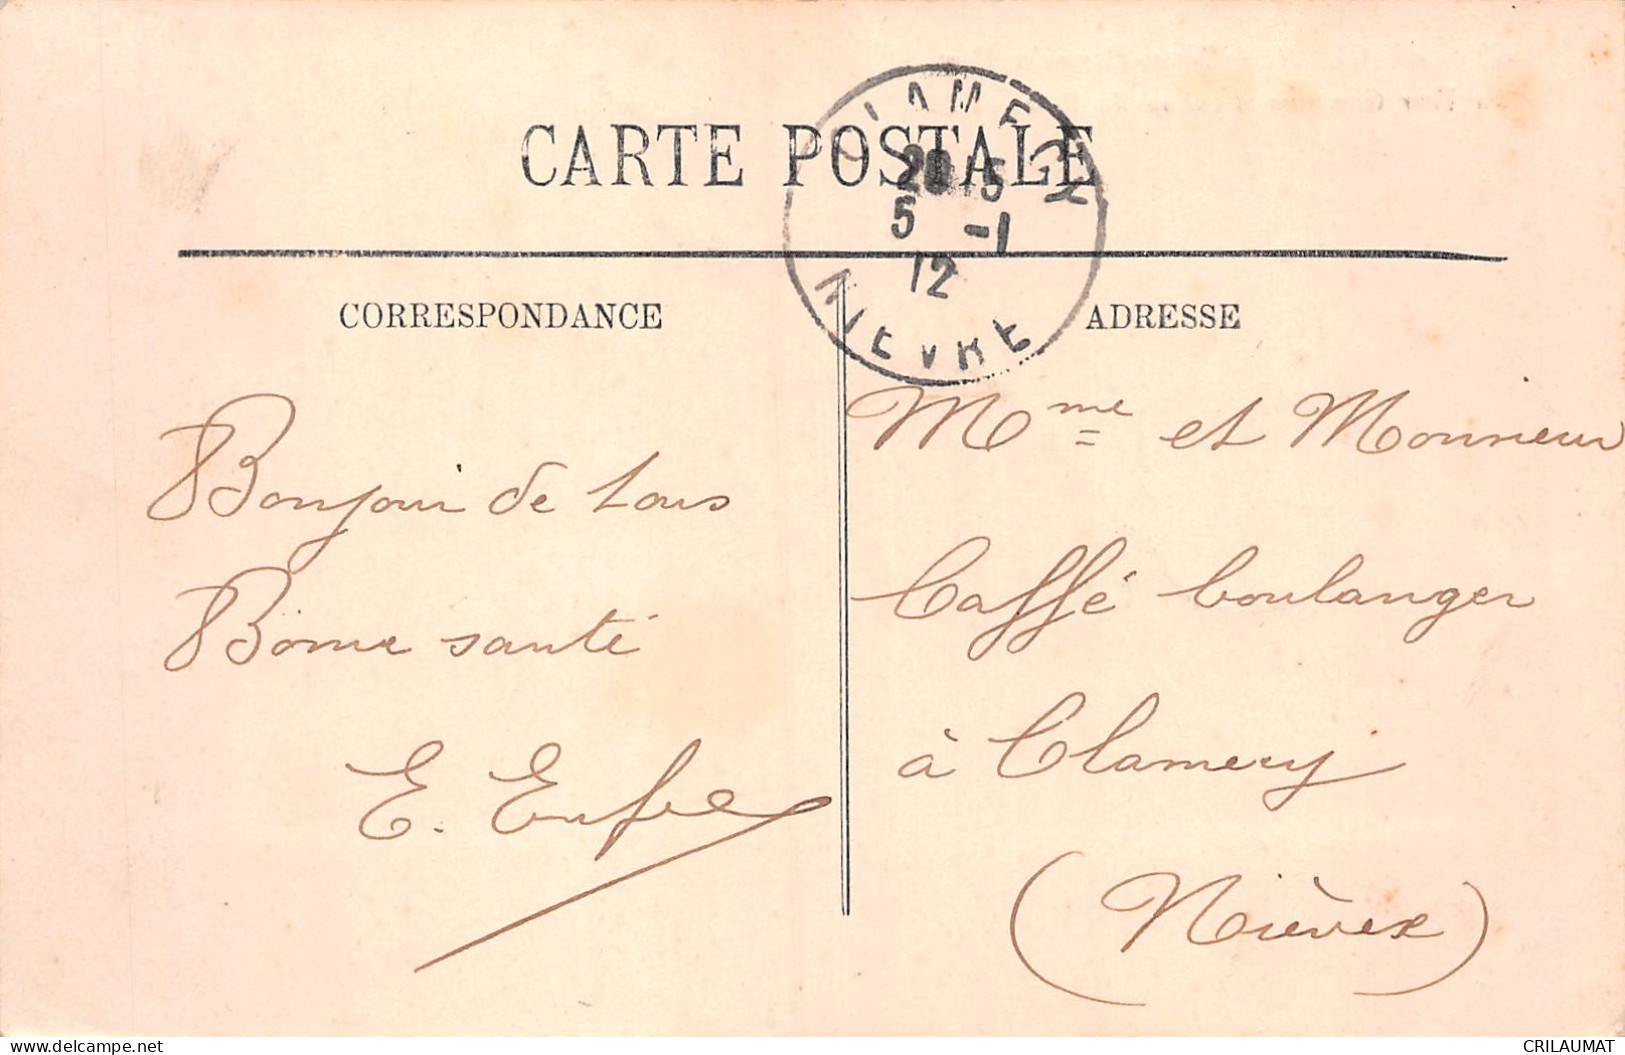 CARTE POSTALE
CLAMECY
20 15
5 -1
12
NIEVRE
CORRESPONDANCE
Bonjour de tous
Bonne santé
E. Enfre
ADRESSE
Mme et Monsieur
Caffé boulanger
à Clamecy
(Nièvre)
CRILAUMAT